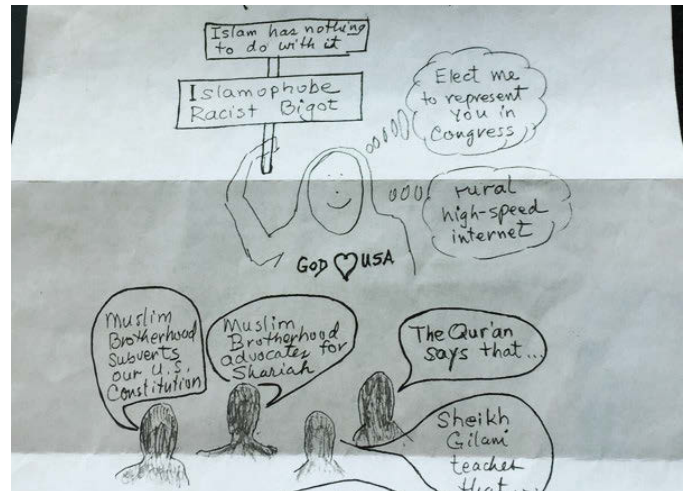 Islam has nothing
to do with it
Islamophobe
Racist Bigot
Elect me
to represent
you in
Congress
rural
high-speed
internet
GOD ♡ USA
Muslim
Brotherhood
subverts
our U.S.
Constitution
Muslim
Brotherhood
advocates for
Shariah
The Qur'an
says that...
Sheikh
Gilani
teaches
that...